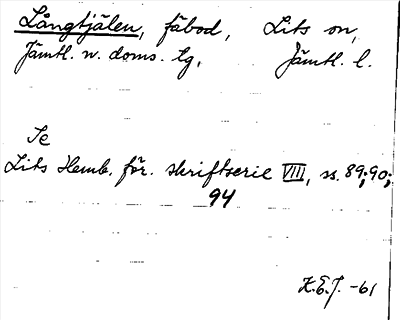 Långtjälen, fäbod, Lits sn,
Jämtl. n. doms. tg, Jämtl. l.
Se
Lits Hemb. för. skriftserie VIII, ss. 89; 90;
94
K.E.J. -61